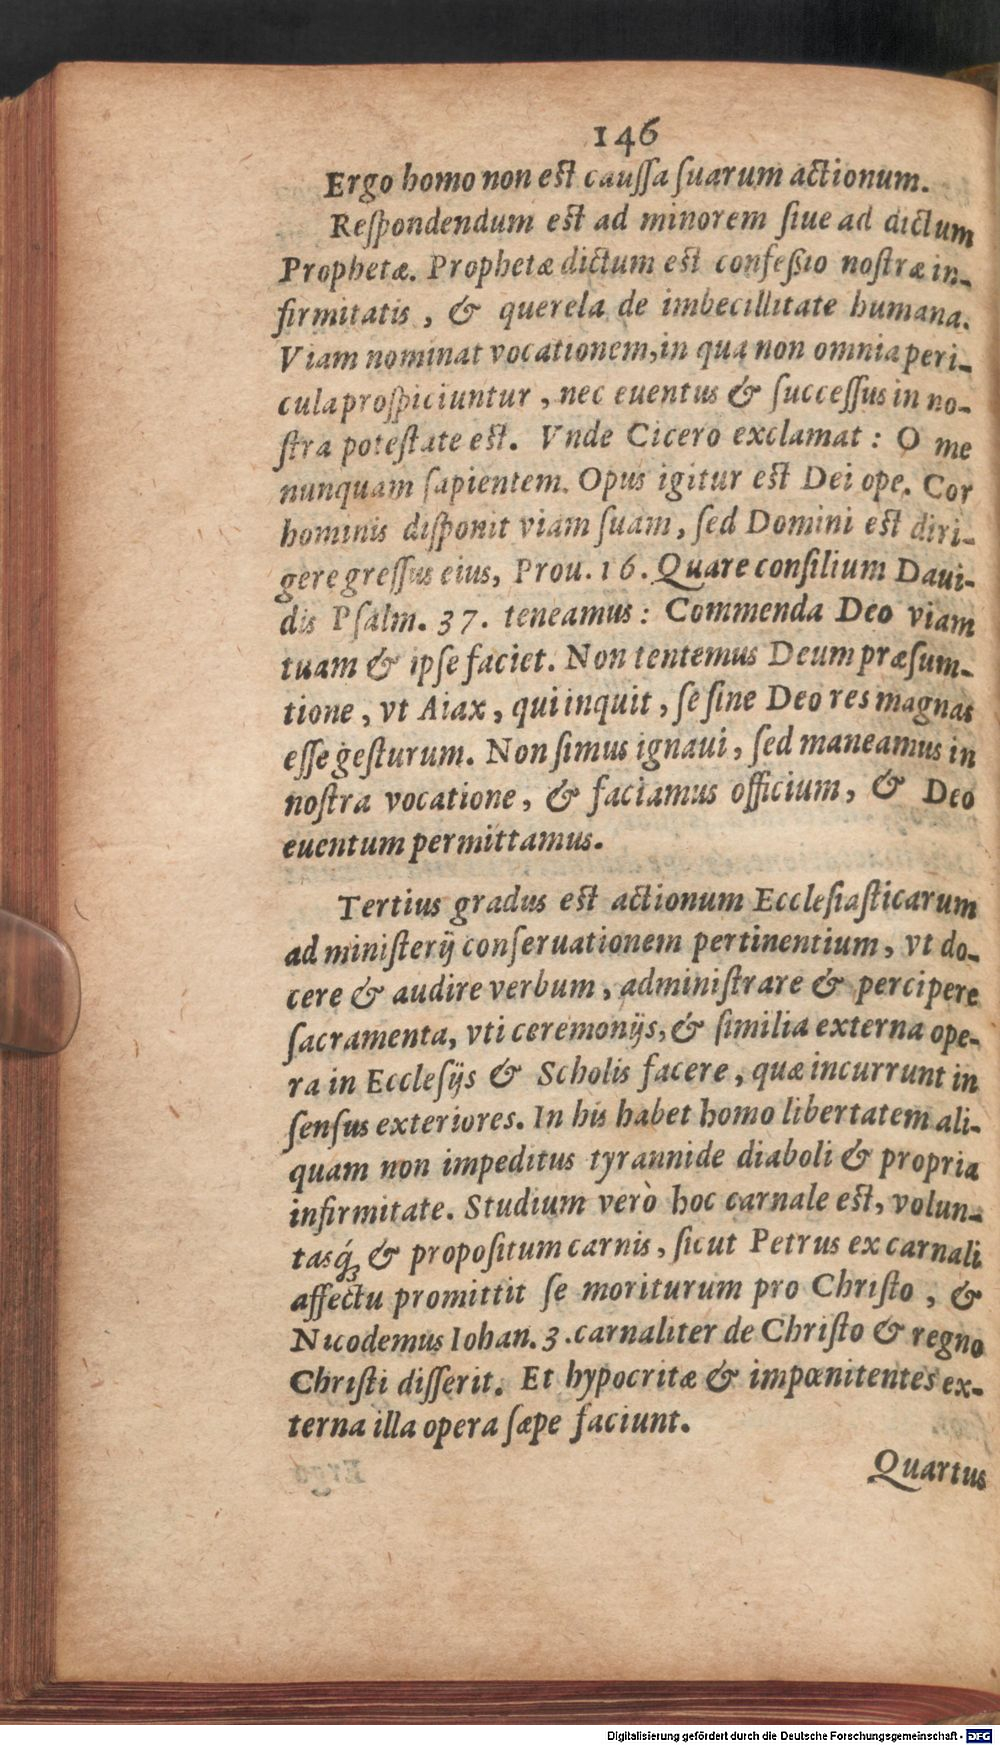 146
Ergo homo non est causſa ſuarum actionum.
Reſpondendum est ad minorem ſiue ad dictum
Prophetæ. Prophetæ dictum est confeßio noſtræ in-
firmitatis, & querela de imbecillitate humana.
Viam nominat vocationem, in qua non omnia peri-
cula proſpiciuntur, nec euentus & ſucceſſus in no-
ſtra poteſtate est. Vnde Cicero exclamat: O me
nunquam ſapientem. Opus igitur est Dei ope. Cor
hominis diſponit viam ſuam, ſed Domini est diri-
gere greſſus eius, Prou. 16. Quare conſilium Daui-
dis Pſalm. 37. teneamus: Commenda Deo viam
tuam & ipſe faciet. Non tentemus Deum præſum-
tione, vt Aiax, qui inquit, ſe ſine Deo res magnas
eſſe geſturum. Non ſimus ignaui, ſed maneamus in
noſtra vocatione, & faciamus officium, & Deo
euentum permittamus.
Tertius gradus est actionum Eccleſiaſticarum
ad miniſterij conſeruationem pertinentium, vt do-
cere & audire verbum, adminiſtrare & percipere
ſacramenta, vti ceremonijs, & ſimilia externa ope-
ra in Eccleſijs & Scholis facere, quæ incurrunt in
ſenſus exteriores. In his habet homo libertatem ali-
quam non impeditus tyrannide diaboli & propria
infirmitate. Studium verò hoc carnale est, volun-
tasq́ꝫ & propoſitum carnis, ſicut Petrus ex carnali
affectu promittit ſe moriturum pro Chriſto, &
Nicodemus Iohan. 3. carnaliter de Chriſto & regno
Chriſti diſſerit. Et hypocritæ & impœnitentes ex-
terna illa opera ſæpe faciunt.
Quartus
Digitalisierung gefördert durch die Deutsche Forschungsgemeinschaft - DFG